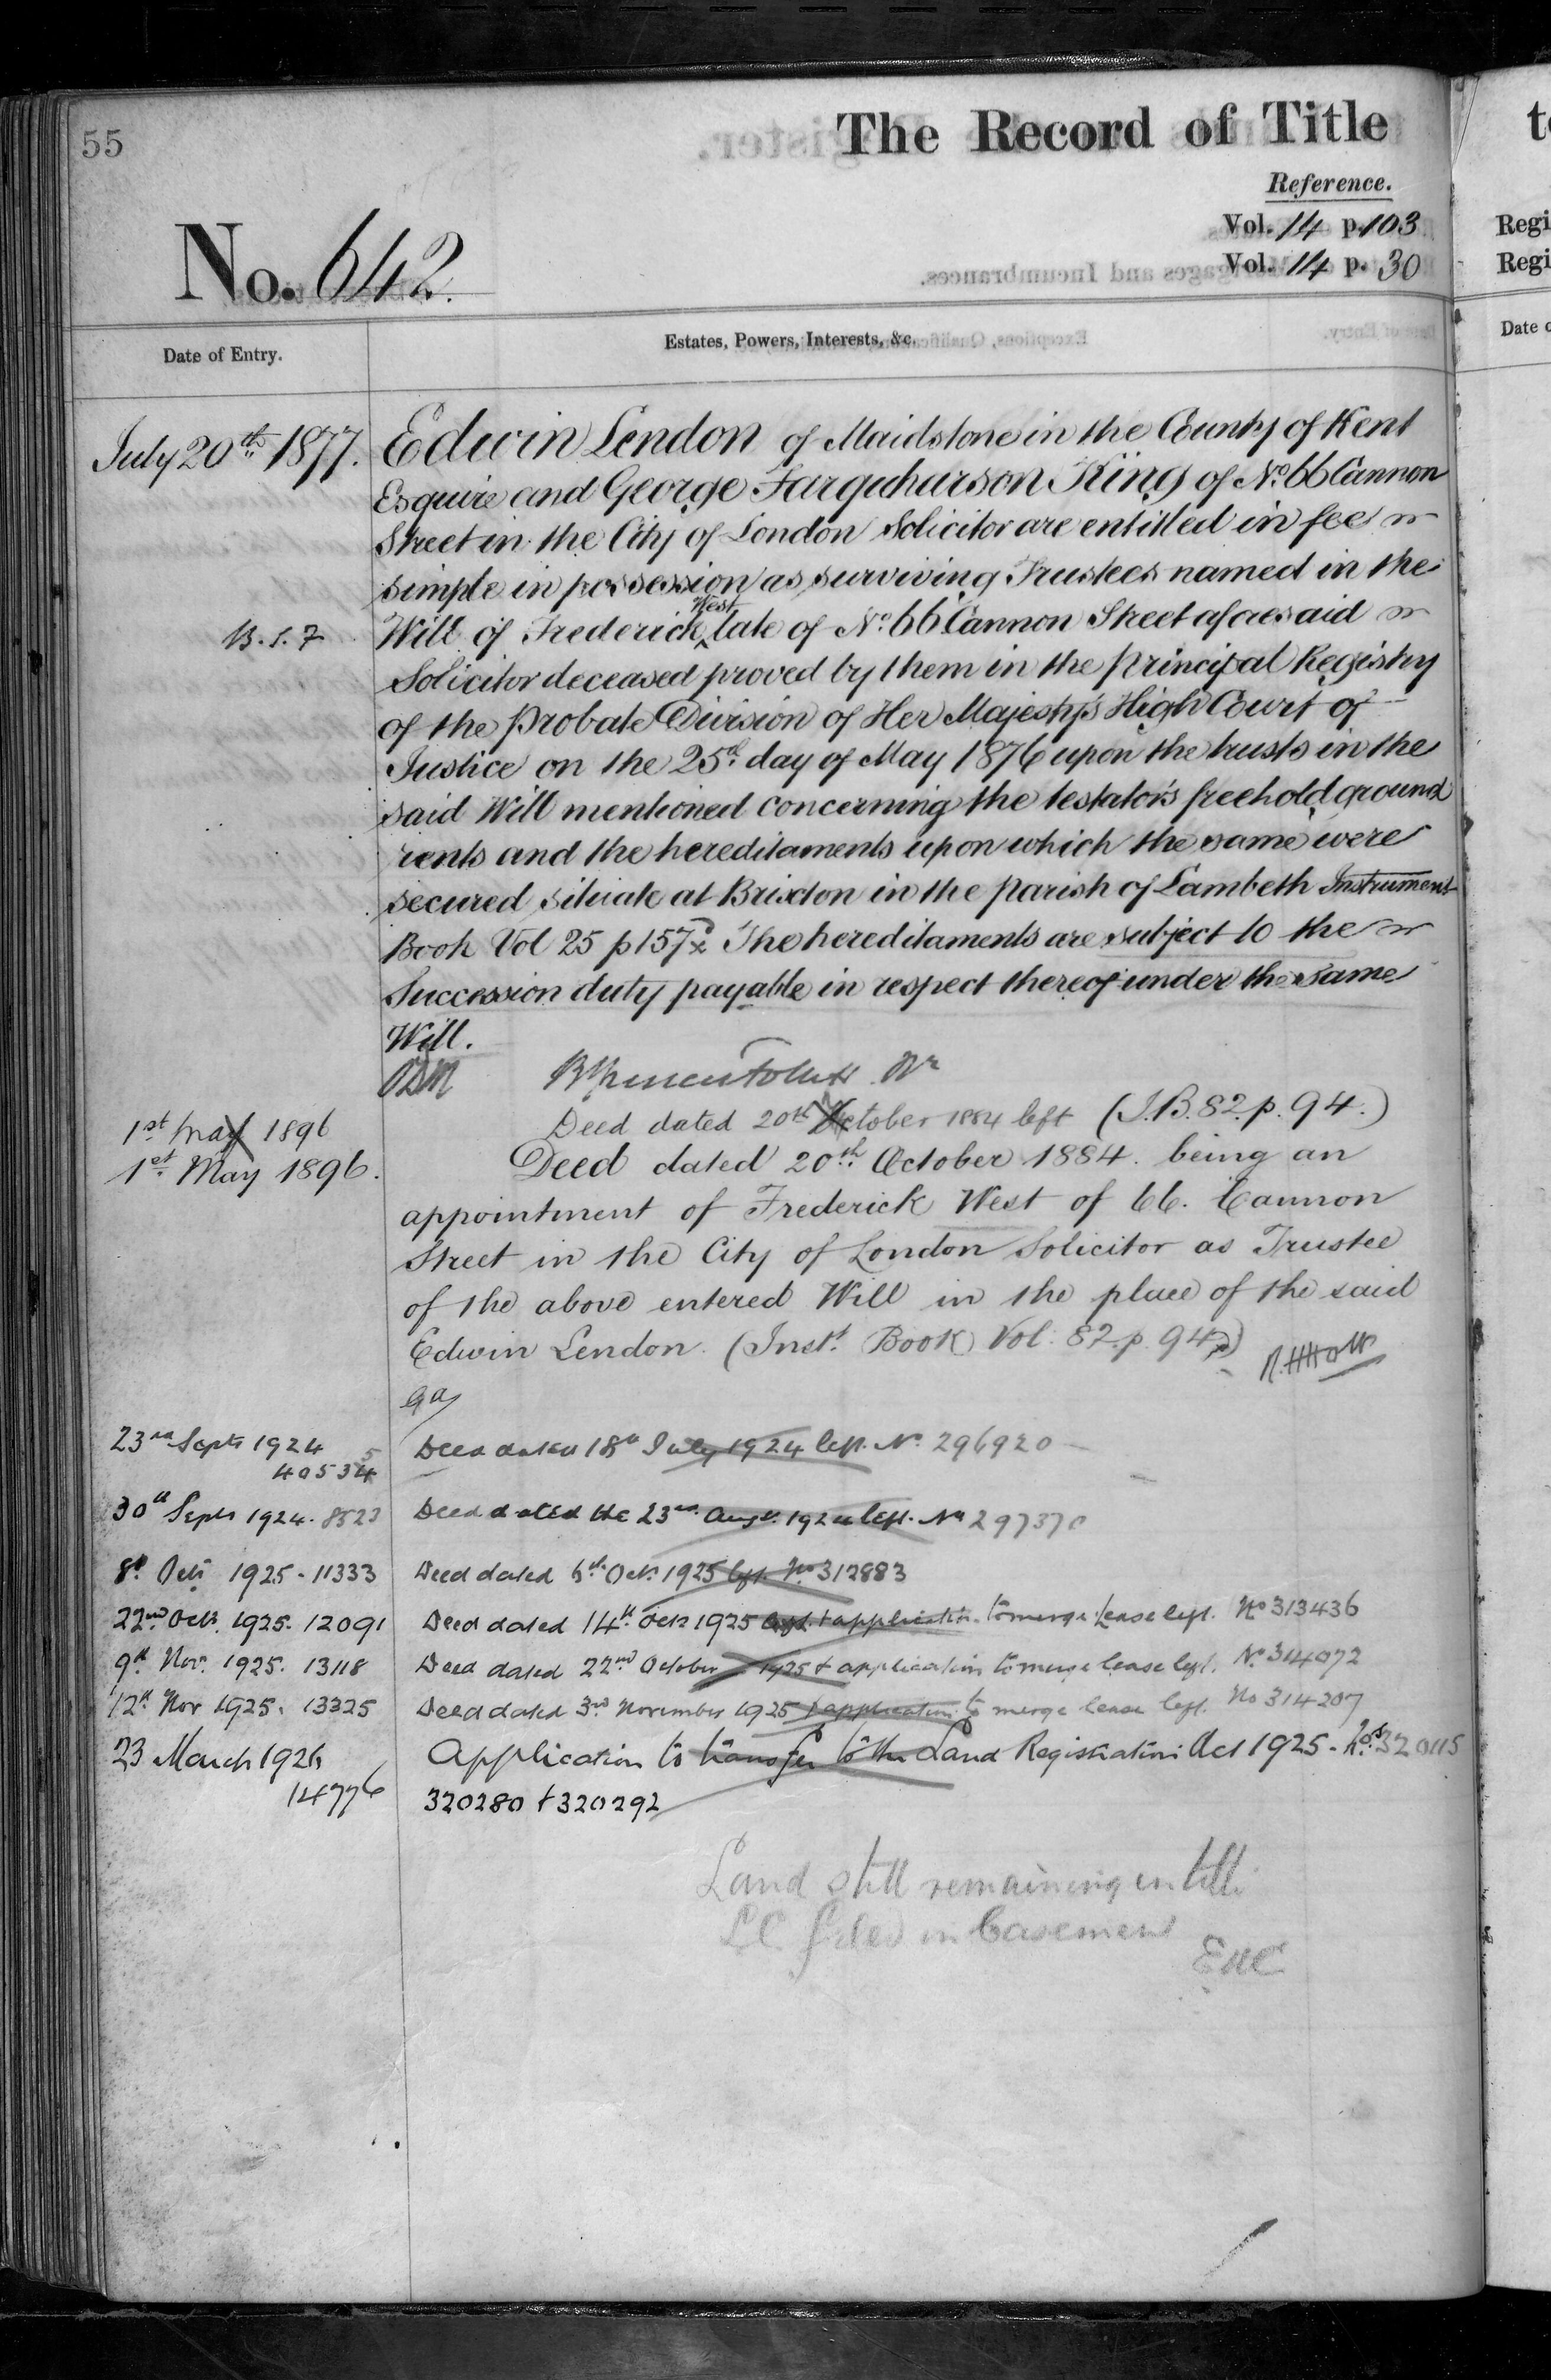 55
The Record of Title
Reference.
Vol. 14 p. 103
Vol. 14 p. 30
No. 642.
Date of Entry.
Estates, Powers, Interests, &c.
July 20th 1877. Edwin Lendon of Maidstone in the County of Kent
Esquire and George Farquharson King of No. 66 Cannon
Street in the City of London Solicitor are entitled in fee
simple in possession as surviving Trustees named in the
B.S.7 Will of Frederick West late of No. 66 Cannon Street aforesaid
Solicitor deceased proved by them in the Principal Registry
of the Probate Division of Her Majesty's High Court of
Justice on the 25th day of May 1876 upon the trusts in the
said Will mentioned concerning the testator's freehold ground
rents and the hereditaments upon which the same were
secured situate at Brixton in the parish of Lambeth Instrument
Book Vol 25 p 157 The hereditaments are subject to the
Succession duty payable in respect thereof under the same
Will.
1st May 1896 Deed dated 20th October 1884 left (I.B. 82. p. 94.)
1st May 1896. Deed dated 20th October 1884. being an
appointment of Frederick West of 66. Cannon
Street in the City of London Solicitor as Trustee
of the above entered Will in the place of the said
Edwin Lendon. (Inst. Book Vol. 82. p. 94)
23rd Septr 1924 Deed dated 18th July 1924 left. No. 296920
40534 5
30th Septr 1924. 8523 Deed dated the 23rd Augt. 1924 left. No 297370
8th Octr 1925 - 11333 Deed dated 6th Octr. 1925 left No 312883
22nd Octr. 1925. 12091 Deed dated 14th Octr 1925 left & application to merge lease left. No 313436
9th Novr. 1925. 13118 Deed dated 22nd October 1925 & application to merge lease left. No. 314072
12th Nov 1925. 13325 Deed dated 3rd November 1925 & application to merge lease left. No 314207
23 March 1926 Application to transfer to the Land Registration Act 1925 - Nos. 320115
14776 320280 & 320292
Land still remaining in title
LC filed in basement
EHC
to
Regi
Regi
Date o